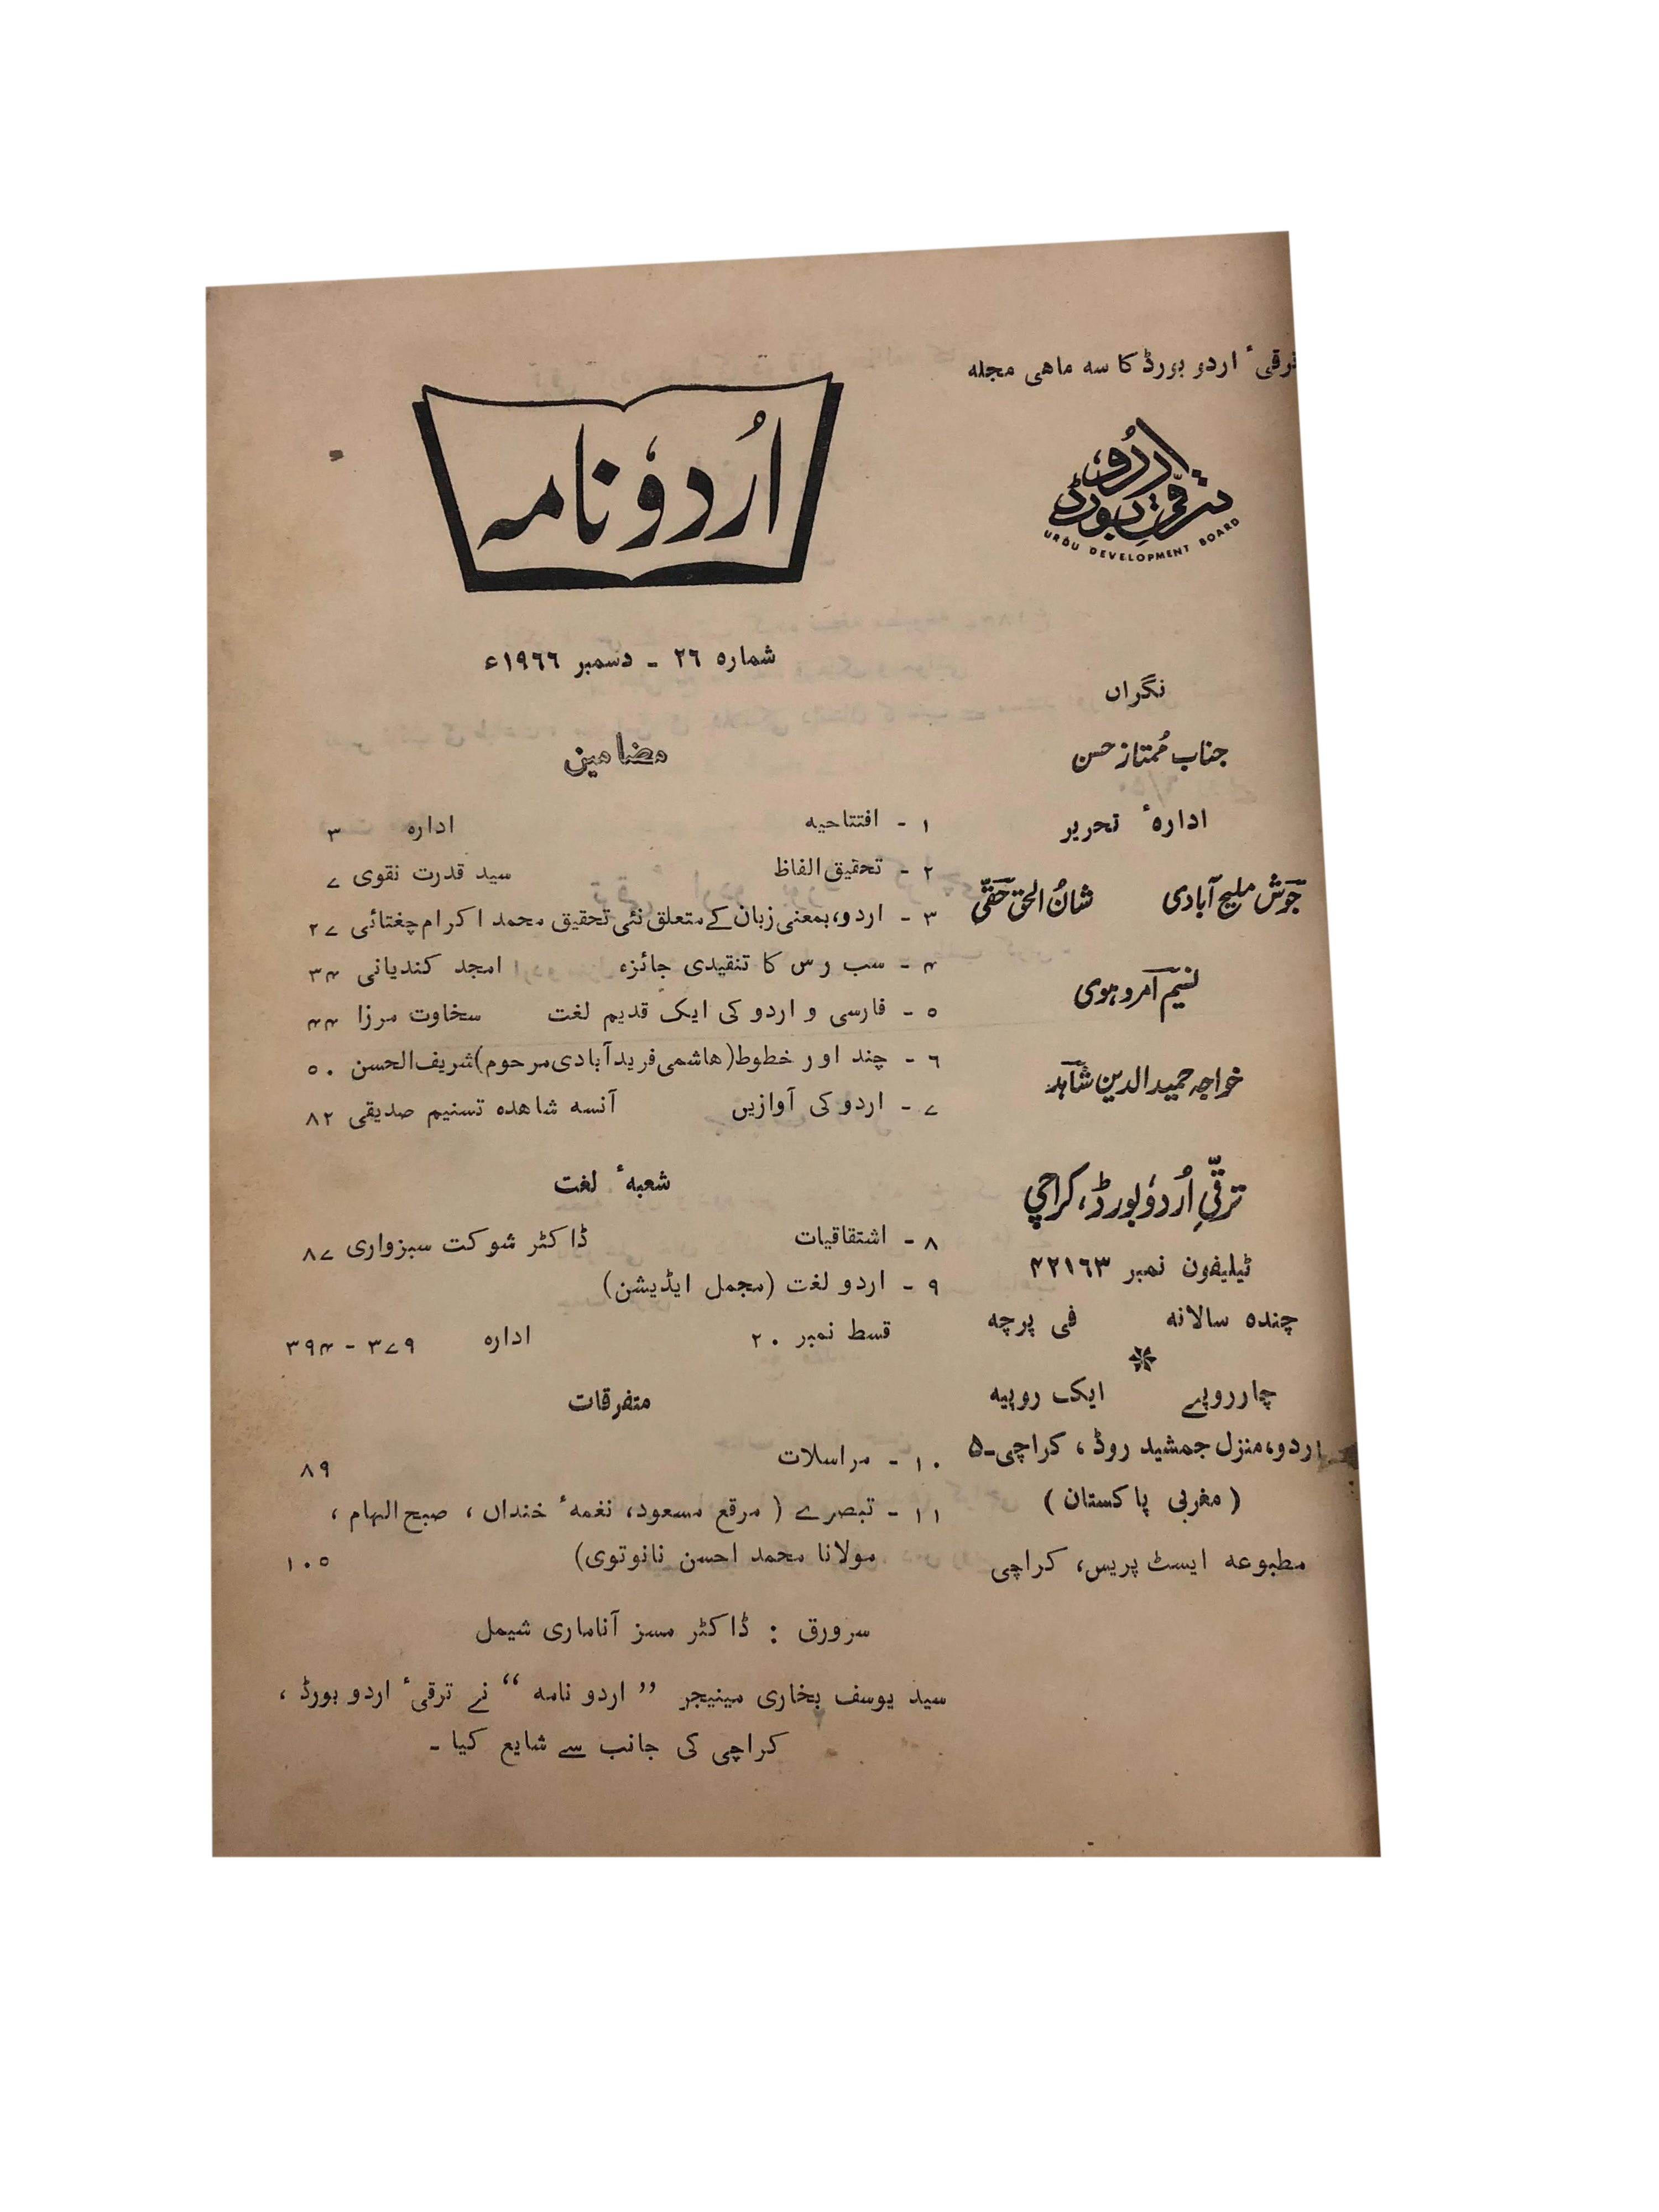 ترقیٔ اردو بورڈ کا سہ ماہی مجلہ
ترقیِ اُردو بورڈ
URDU DEVELOPMENT BOARD
نگراں
جناب مُمتاز حسن
ادارۂ تحریر
جوؔش ملیح آبادی شانُ الحق حقّؔی
نسیمؔ امروہوی
خواجہ حمید الدین شاہؔد
ترقّیِ اُردو بورڈ، کراچی
ٹیلیفون نمبر ۴۲۱۶۳
چندہ سالانہ فی پرچہ
چار روپے ایک روپیہ
اردو، منزل جمشید روڈ، کراچی۔۵
(مغربی پاکستان)
مطبوعہ ایسٹ پریس، کراچی
اُردو نامہ
شمارہ ۲۶ ۔ دسمبر ۱۹۶۶ء
مضامین
۱ - افتتاحیہ ادارہ ۳
۲ - تحقیق الفاظ سید قدرت نقوی ۷
۳ - اردو، بمعنی زبان کے متعلق نئی تحقیق محمد اکرام چغتائی ۲۷
۴ - سب رس کا تنقیدی جائزہ امجد کندیانی ۳۴
۵ - فارسی و اردو کی ایک قدیم لغت سخاوت مرزا ۴۴
۶ - چند اور خطوط (ھاشمی فریدآبادی مرحوم) شریف الحسن ۵۰
۷ - اردو کی آوازیں آنسہ شاھدہ تسنیم صدیقی ۸۲
شعبۂ لغت
۸ - اشتقاقیات ڈاکٹر شوکت سبزواری ۸۷
۹ - اردو لغت (مجمل ایڈیشن)
قسط نمبر ۲۰ ادارہ ۳۷۹ - ۳۹۴
متفرقات
۱۰ - مراسلات ۸۹
۱۱ - تبصرے (مرقع مسعود، نغمۂ خنداں، صبح الہام،
مولانا محمد احسن نانوتوی) ۱۰۵
سرورق : ڈاکٹر مسز آناماری شیمل
سید یوسف بخاری مینیجر ”اردو نامہ“ نے ترقیٔ اردو بورڈ،
کراچی کی جانب سے شایع کیا ۔